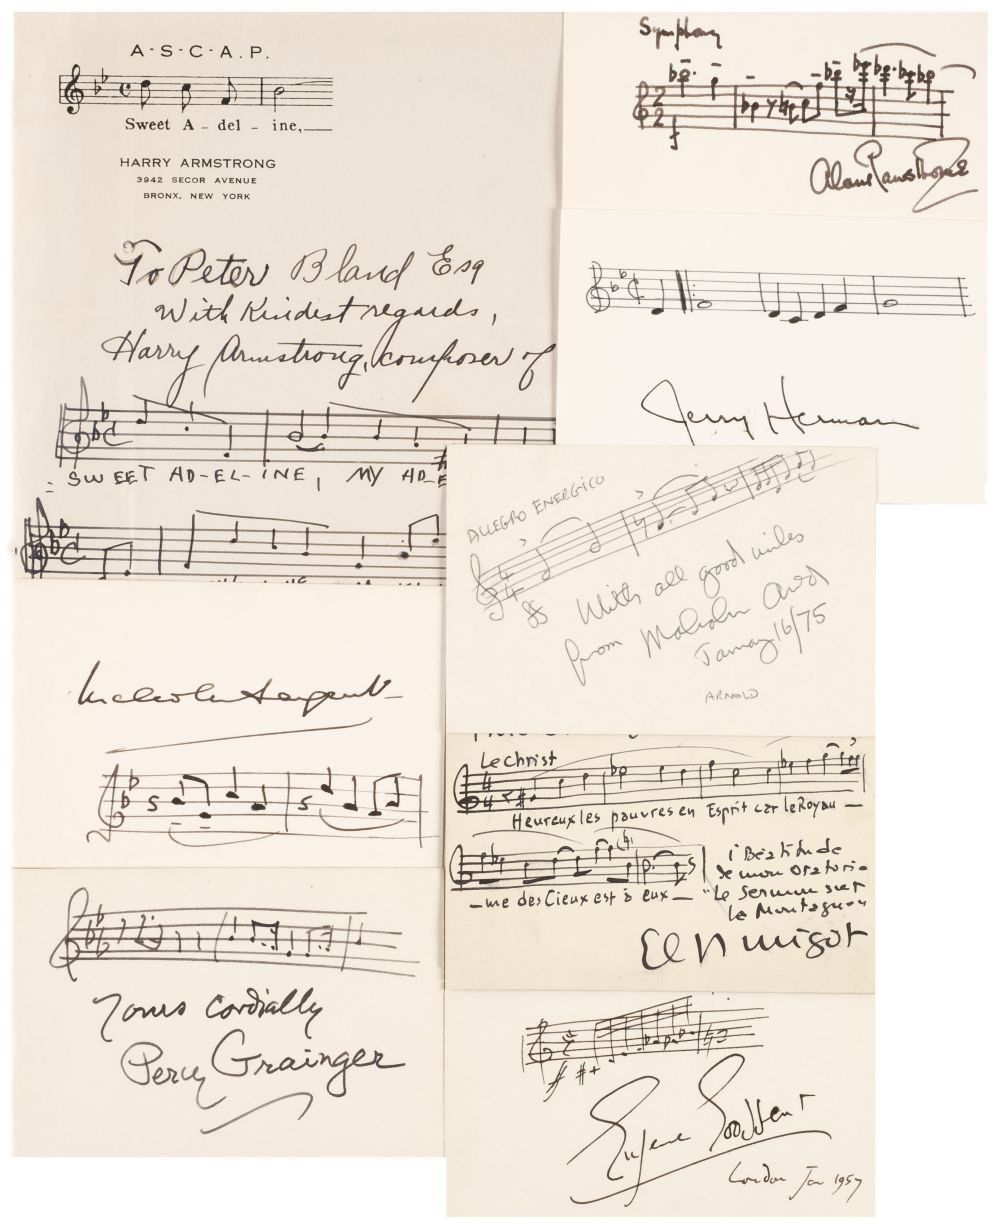 A-S-C-A.P.
Sweet A - del - ine,
HARRY ARMSTRONG
3942 SECOR AVENUE
BRONX, NEW YORK
To Peter Bland Esq
With Kindest regards,
Harry Armstrong, composer of
SWEET AD-EL-INE, MY AD-E
Symphony
Jerry Herman
ALLEGRO ENERGICO
With all good wishes
from Malcolm Arnold
January 16/75
ARNOLD
Malcolm Sargent
Le Christ
Heureux les pauvres en Esprit car le Royau —
— me des Cieux est à eux —
1° Béatitude
de mon Oratorio
"Le Sermon sur
la Montagne"
Yours Cordially
Percy Grainger
Eugene Goossens
London Jan 1957